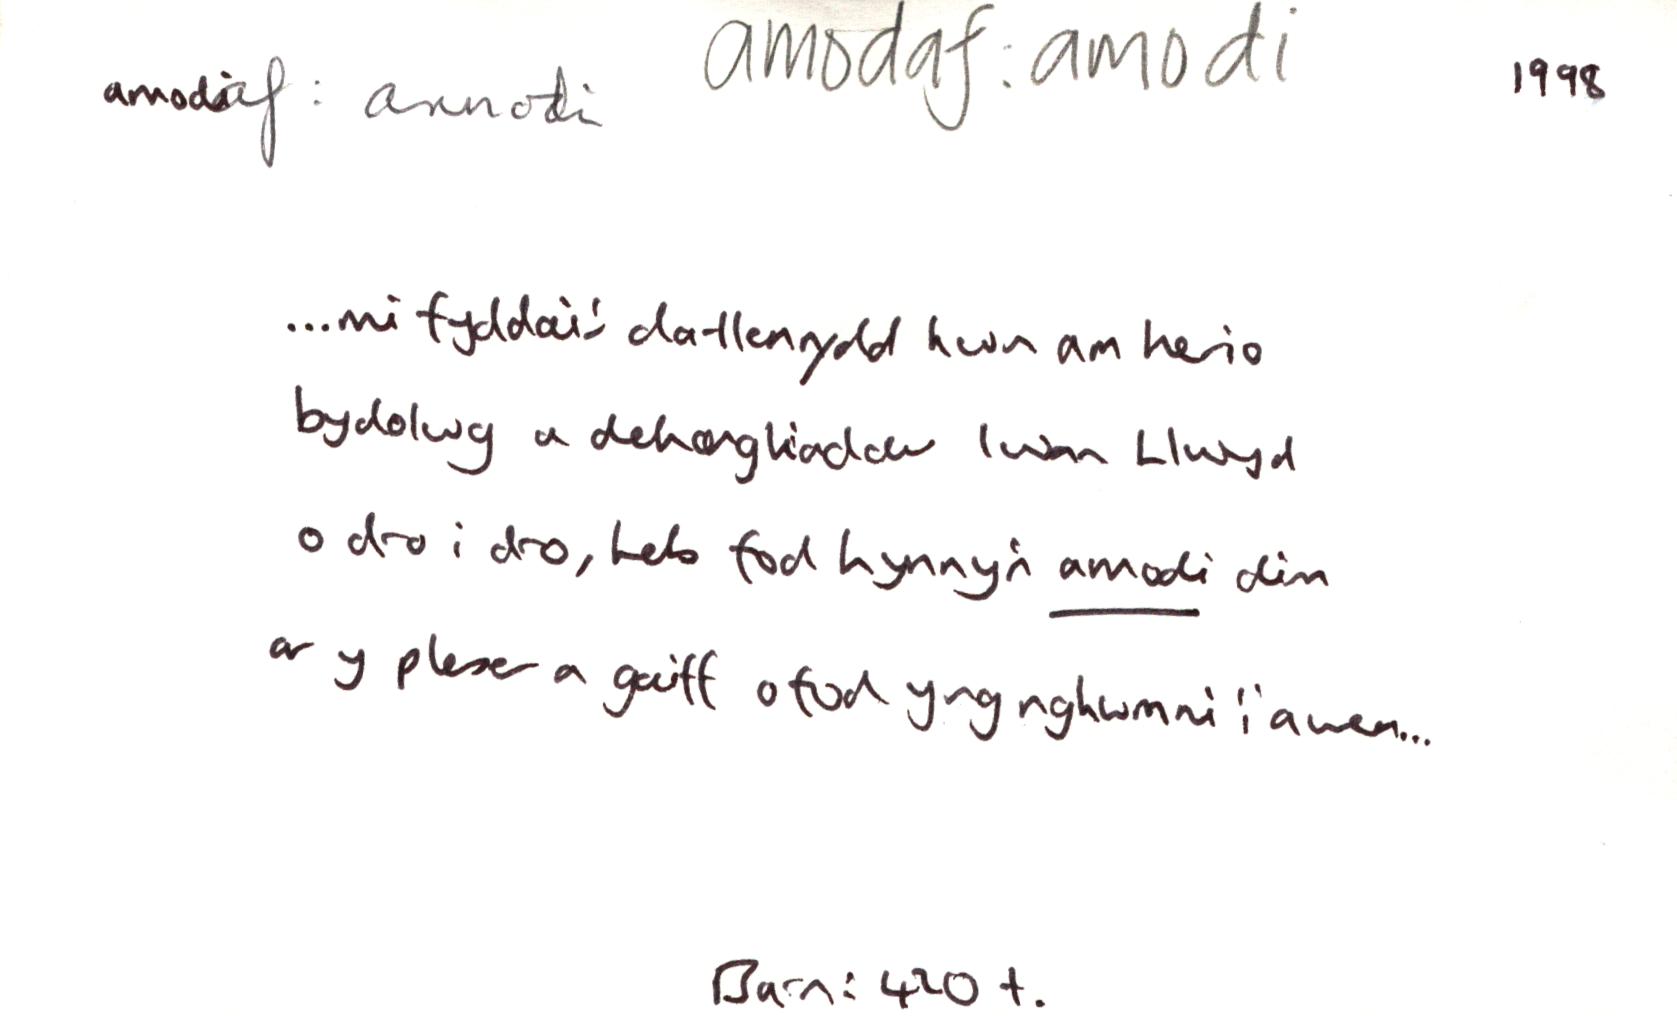 amodaf : amodi
amodaf : amodi
1998
...mi fyddai'r darllenydd hwn am herio
bydolwg a dehongliadau Iwan Llwyd
o dro i dro, heb fod hynny'n amodi dim
ar y pleser a gaiff o fod yng nghwmni'i awen...
Barn: 420 t.